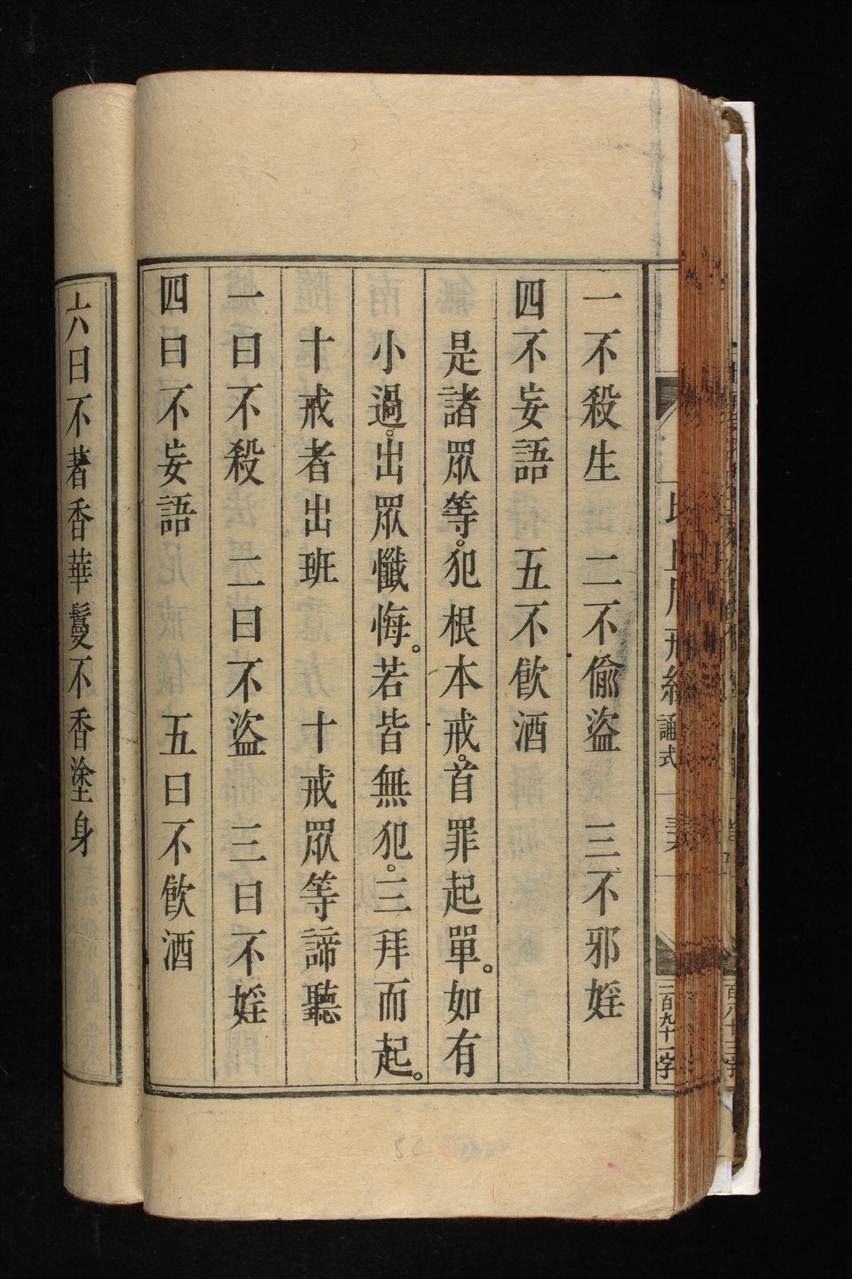 一不殺生　二不偷盜　三不邪婬
四不妄語　五不飲酒
是諸眾等。犯根本戒。首罪起單。如有
小過。出眾懺悔。若皆無犯。三拜而起。
十戒者出班　十戒眾等諦聽
一曰不殺　二曰不盜　三曰不婬
四曰不妄語　五曰不飲酒
六曰不著香華鬘不香塗身
戒經
誦式
三百九十一字
百八十三字
82